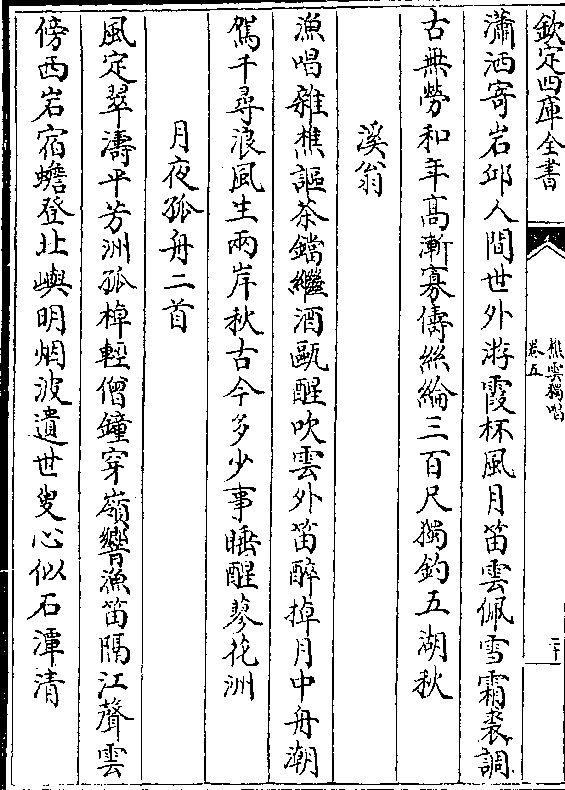 欽定四庫全書
樵雲獨唱
卷五
二十
瀟洒寄岩邱人間世外游霞杯風月笛雲佩雪霜裘調
古無勞和年高漸寡儔絲綸三百尺獨釣五湖秋
溪翁
漁唱雜樵謳茶鐺繼酒甌醒吹雲外笛醉掉月中舟潮
駕千尋浪風生兩岸秋古今多少事睡醒蓼花洲
月夜孤舟二首
風定翠濤平芳洲孤棹輕僧鐘穿嶺響漁笛隔江聲雲
傍西岩宿蟾登北嶼明烟波遺世叟心似石潭清